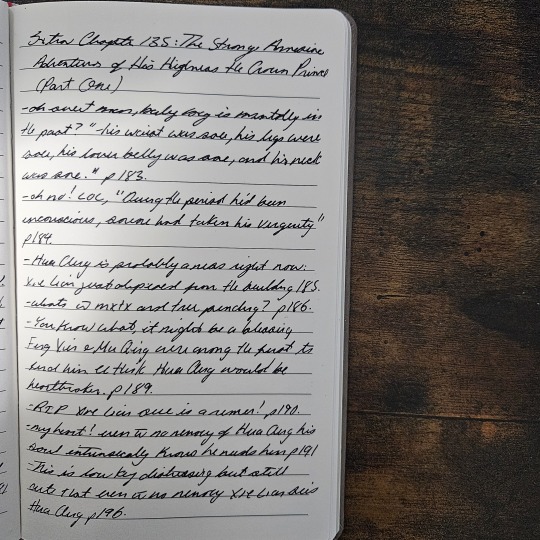 Extra Chapter 135: The Strange Amnesiac
Adventures of His Highness the Crown Prince
(Part One)
-oh sweet, body is mentally in
the past? "his waist was sore, his legs were
sore, his lower belly was sore, and his neck
was sore." p183.
-oh no! LOL, "During the period he'd been
unconscious, someone had taken his virginity"
p184.
-Hua Cheng is probably a mess right now:
Xie Lian just disappeared from the building 185.
-whats w mxtx and tree pounding? p186.
-You know what, it might be a blessing
Feng Xin & Mu Qing were among the first to
find him. I think Hua Cheng would be
heartbroken. p189.
-RIP Xie Lian is a! p190.
-my heart! even w no memory of Hua Cheng his
soul intrinsically knows he needs him p191
-This is low key distressing but still
cute that even w no memory Xie Lian
Hua Cheng p196.